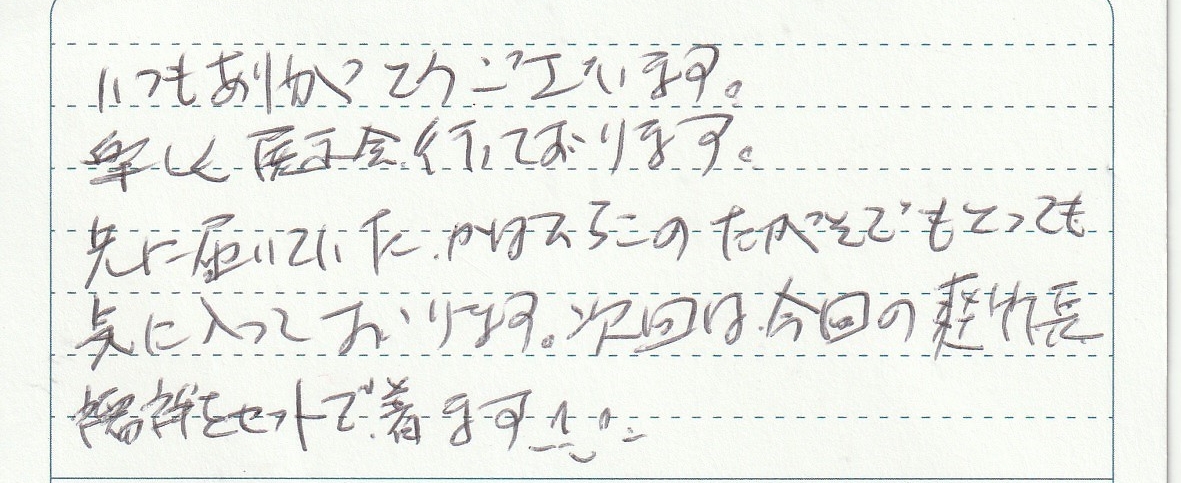 いつもありがとうございます。
楽しく展示会行っております。
先に届いていた、かはひらこのたがそでもとっても
気に入っております。次回は、今回の爽竹長
襦袢をセットで着ます^^